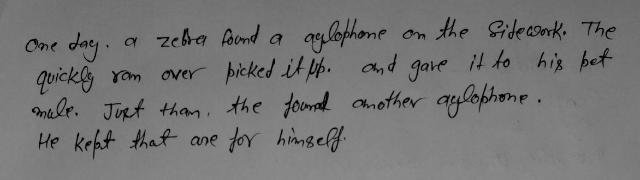 One day. a zebra found a aylophone on the Sidework. The
quickly ran over picked it up. and gave it to his pet
mule. Just than, the found another aylophone.
He kept that one for himself.